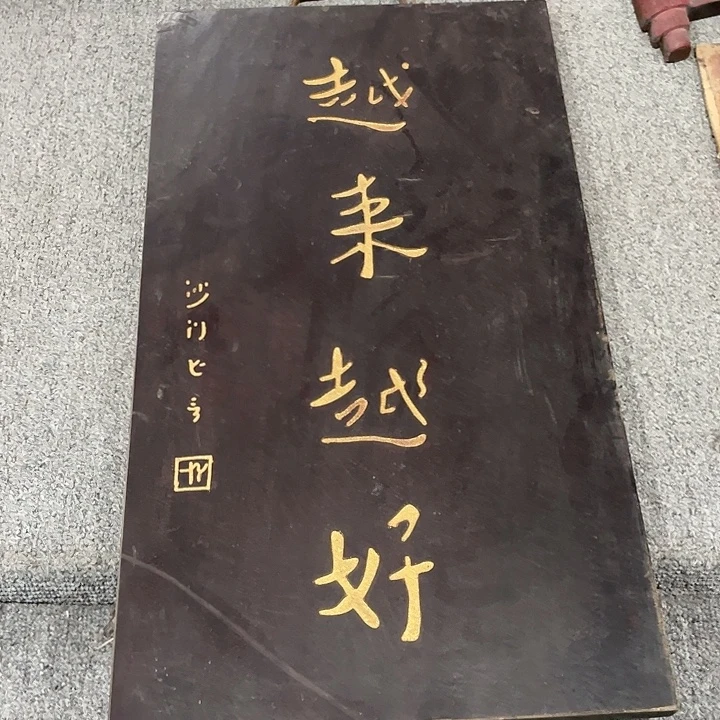 越来越好
沙门七言